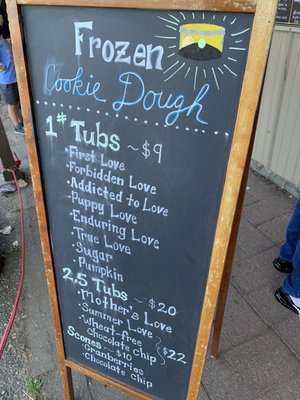 Frozen
Cookie Dough
1# Tubs ~ $9
• First Love
• Forbidden Love
• Addicted to Love
• Puppy Love
• Enduring Love
• True Love
• Sugar
• Pumpkin
2.5 Tubs ~ $20
• Mother's Love
• Summer Love
• Wheat-free
chocolate chip } $22
Scones ~ $10
• Cranberries
• Chocolate chip